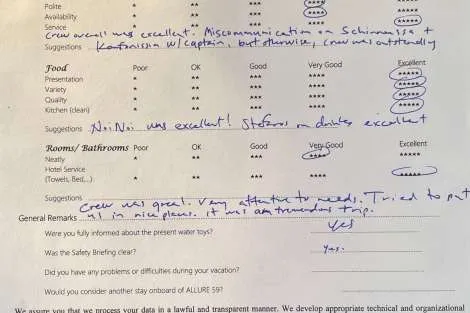 Polite * ** *** **** *****
Availability * ** *** **** *****
Service * ** *** **** *****
Crew overall was excellent. Miscommunication on Schinoussa +
Suggestions w/captain, but otherwise, crew was outstanding
Food Poor OK Good Very Good Excellent
Presentation * ** *** **** *****
Variety * ** *** **** *****
Quality * ** *** **** *****
Kitchen (clean) * ** *** **** *****
Suggestions Noi Noi was excellent! Stefanos on drinks excellent
Rooms/ Bathrooms Poor OK Good Very Good Excellent
Neatly * ** *** **** *****
Hotel Service
(Towels, Bed,..) * ** *** **** *****
Suggestions
Crew was great. Very attentive to needs. Tried to put
General Remarks us in nice places. It was a tremendous trip.
Were you fully informed about the present water toys? yes
Was the Safety Briefing clear? yes.
Did you have any problems or difficulties during your vacation?
Would you consider another stay onboard of ALLURE 59?
We assure you that we process your data in a lawful and transparent manner. We develop appropriate technical and organizational